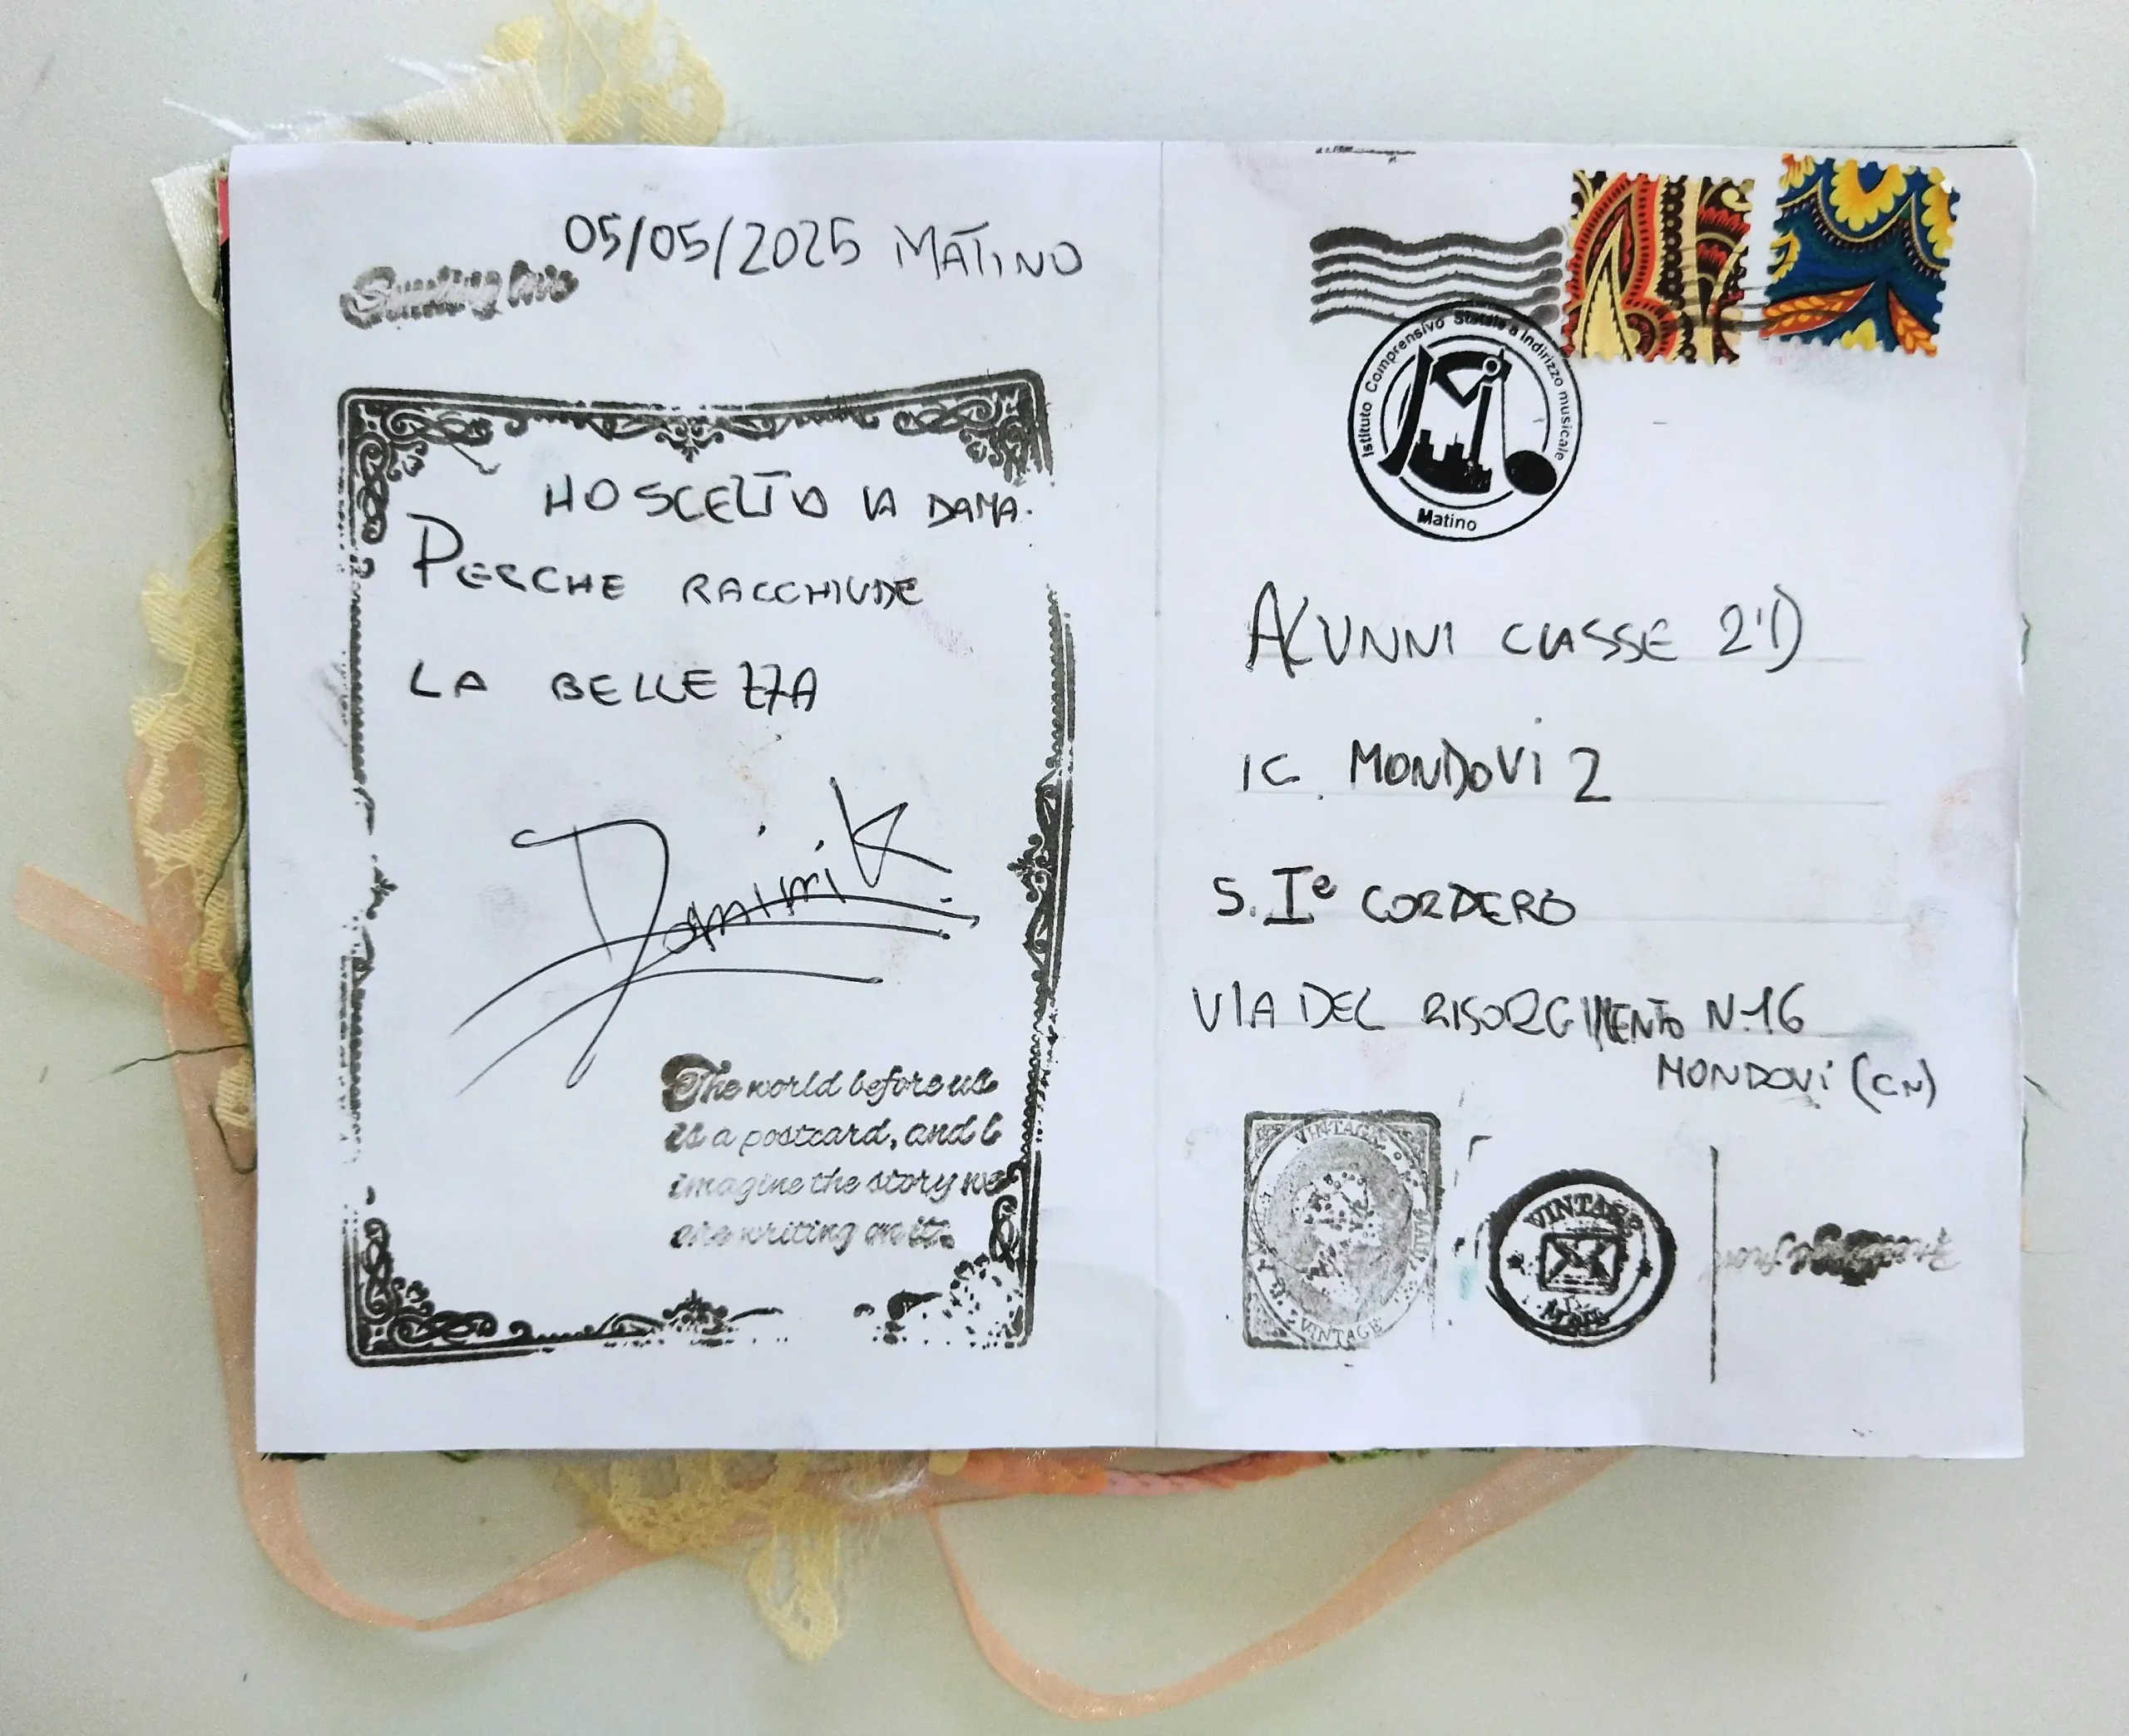 05/05/2025 MATINO
Sending love
HO SCELTO LA DAMA.
PERCHE RACCHIUDE
LA BELLEZZA
Dominik
The world before us
is a postcard, and I
imagine the story we
are writing on it.
Istituto Comprensivo Statale a Indirizzo musicale
Matino
ALUNNI CLASSE 2'D
IC. MONDOVI 2
S. Iº CORDERO
VIA DEL RISORGIMENTO N.16
MONDOVì (CN)
VINTAGE
VINTAGE
VINTAGE
MAIL